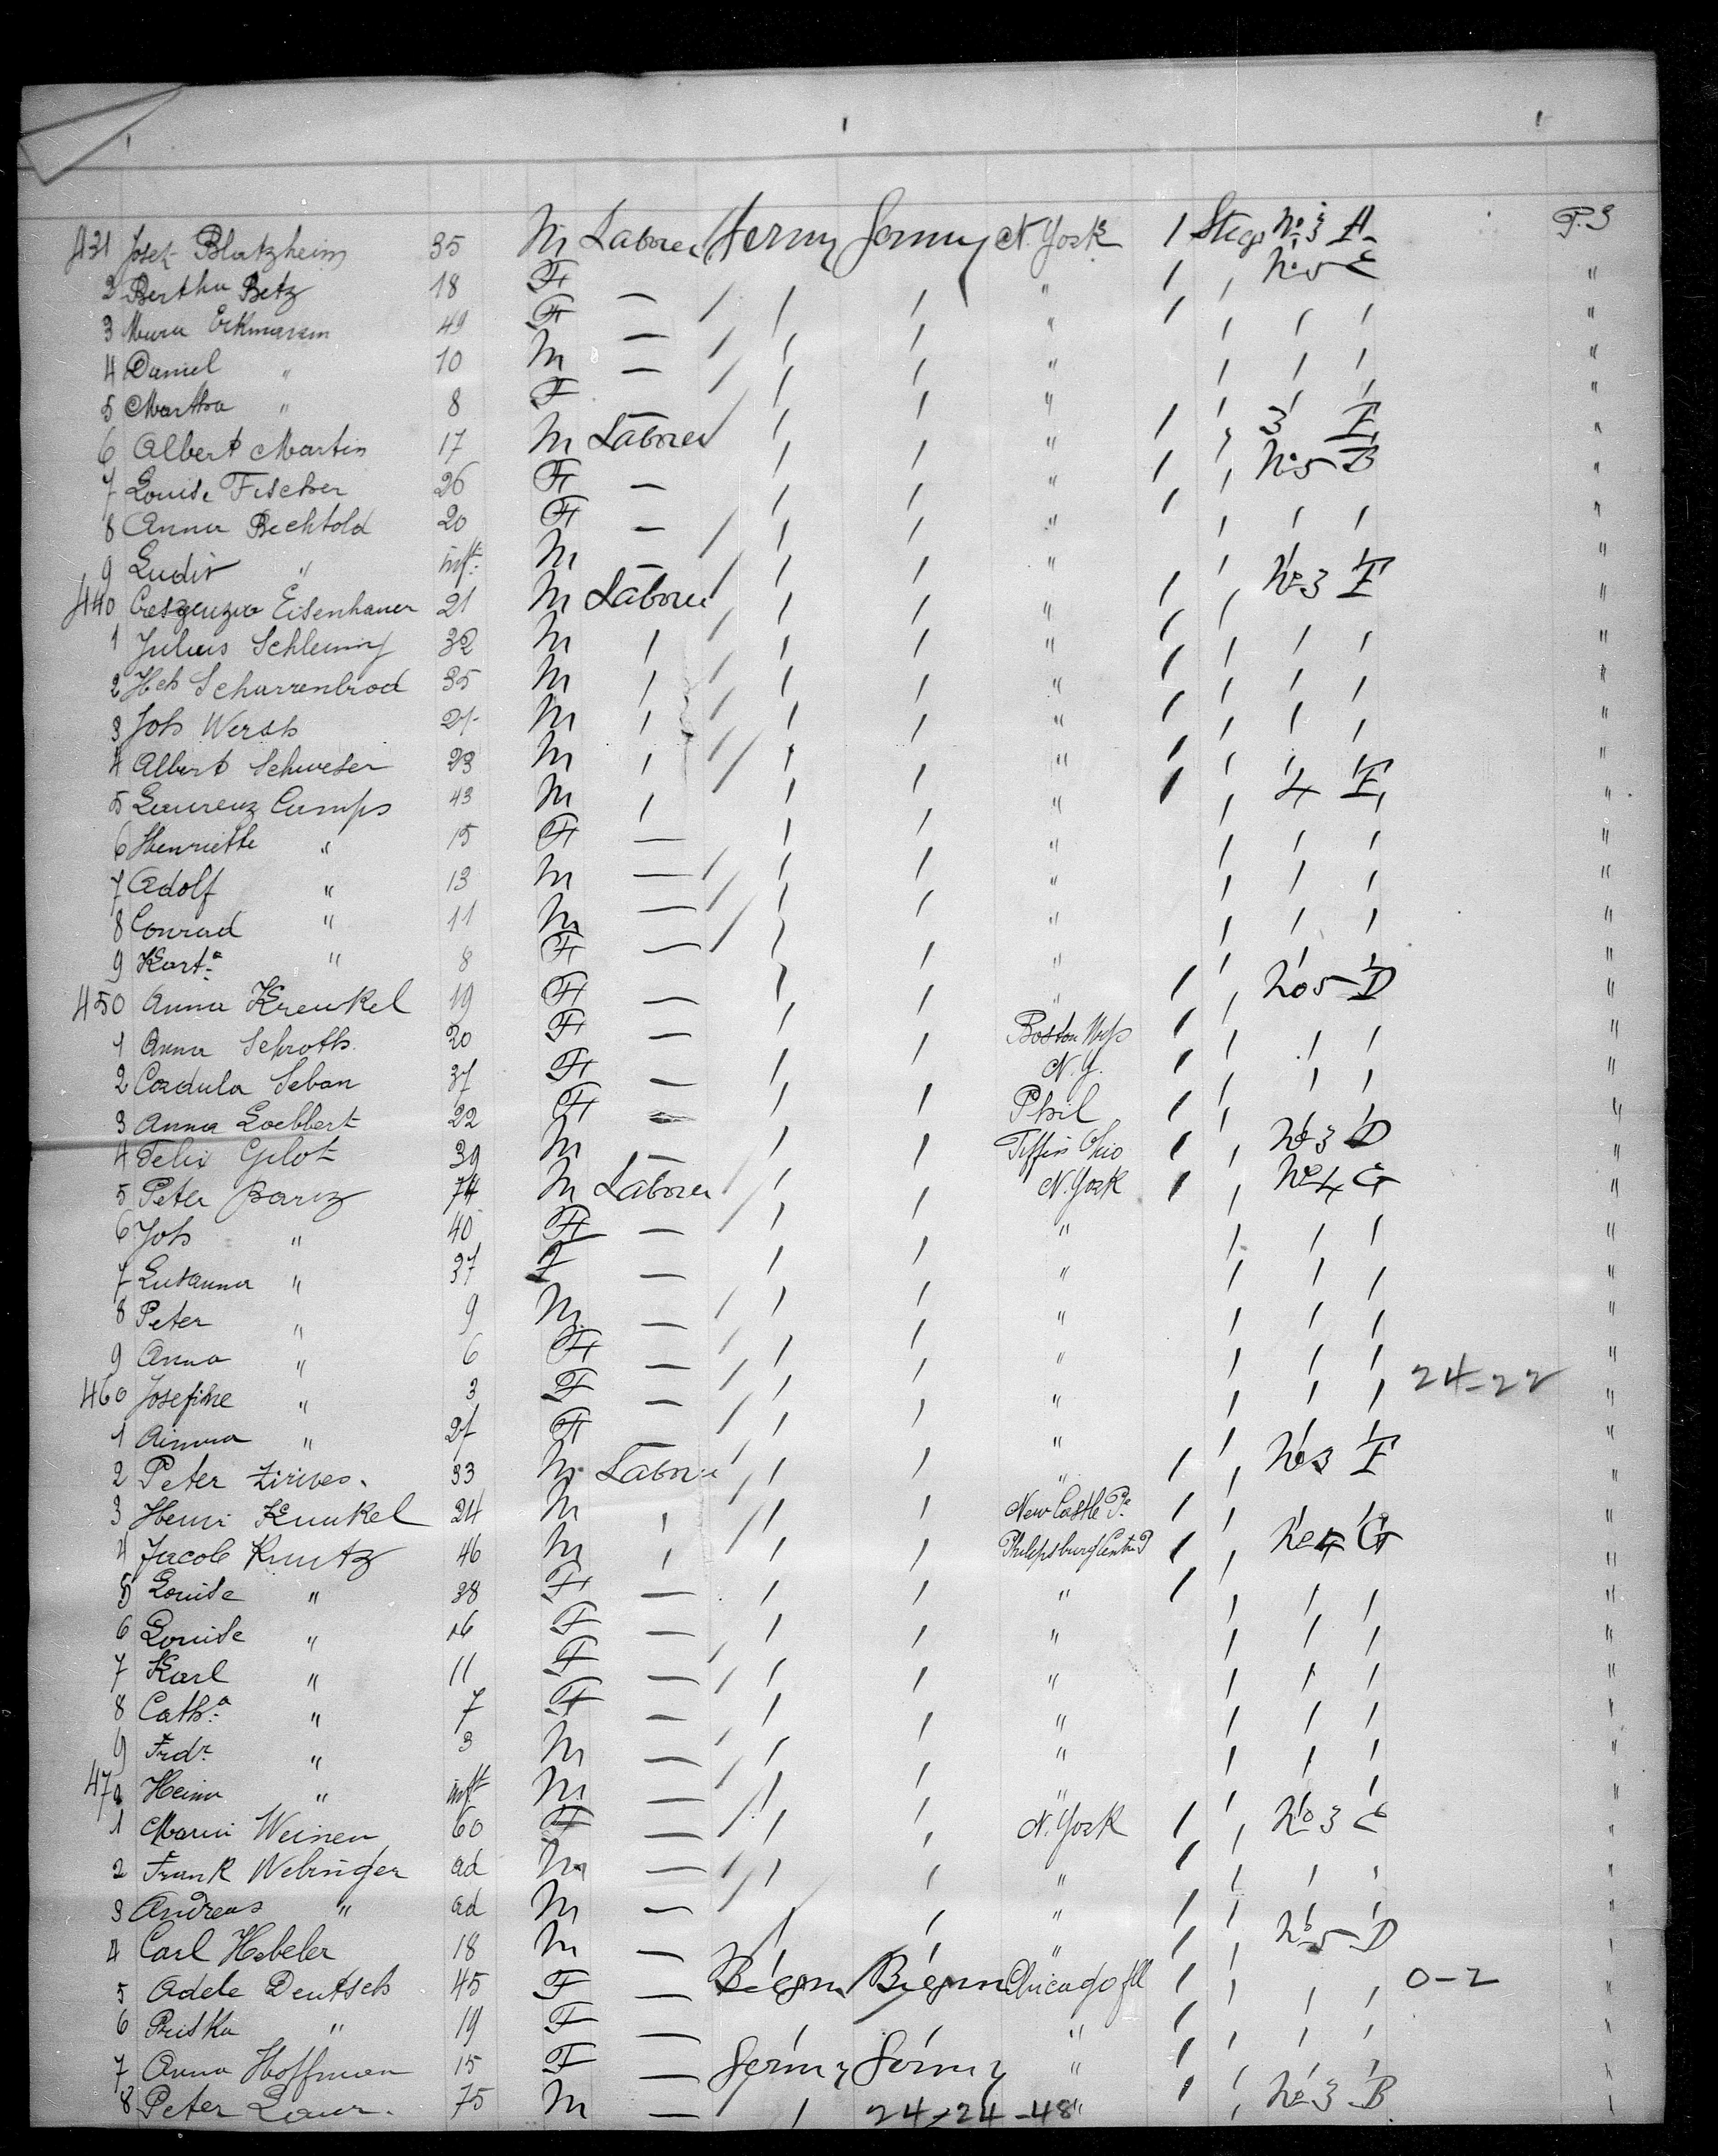 431 Josef Blatzheim 35 M Laborer Germy Germy N. York 1 Stege No 3 A P.S
2 Bertha Betz 18 F — / / / " / / No 5 E "
3 Eckmann 49 F — / / / " / / / / "
4 Daniel " 10 M — / / / " / / / "
5 Martha " 8 F — / / / " / / / "
6 Albert Martin 17 M Laborer / / / " / / 3 F "
7 Louise Fischer 26 F — / / " / / No 5 B "
8 Anna Bechtold 20 F — / / / " / / / / "
9 " inft. M — / / / " / / / "
440 Eisenhauer 21 M Laborer / / / " / / No 3 F "
1 Julius Schleming 32 M / / / / " / / / / "
2 Hch Scharrenbrod 35 M / / / / " / / / / "
3 Joh Wersch M / / / / " / / / / "
4 Albert Schweser 23 M / / / / " / / / / "
5 Laurenz Camps 43 M / / / " / / 4 F "
6 Henriette " 15 F — / / " / / / "
7 Adolf " 13 M — / / / " / / / "
8 Conrad " 11 M — / / / " / / / "
9 " 8 F — / / " / / / "
450 Anna Krenkel 19 F — / / " / / No 5 D "
1 Anna Schroth 20 F — / / Boston / / / / "
2 Cordula Seban 37 F — / / N.Y. / / / / "
3 Anna Loebbert 22 F — / / Phil / / / / "
4 Felix Gilot 39 M — / / Tiffin Ohio / / No 3 D "
5 Peter 74 M Laborer / / / N. York / / No 4 G "
6 Joh " 40 F — / / " / / / "
7 " 37 F — / / " / / / "
8 Peter " 9 M — / / / " / / / "
9 Anna " 6 F — / / / " / / / "
460 Josefine " 3 F — / / / " / / / 24-22 "
1 " 27 F — / / / " / / / "
2 Peter Zirwes 33 M Laborer / / / " / / No 3 F "
3 Henri Kunkel 24 M / / / / New Castle Pa / / / / "
4 Jacob Kuntz 46 M / / / Philipsburg Centre P / / No 4 G "
5 Louise " 38 F — / / " / / / / "
6 Louise " 16 F — / / " / / / "
7 Karl " 11 F — / / / " / / / "
8 Cath.a " 7 F — / / " / / / "
9 Frdr. " 3 M — / / / " / / / "
470 " inft M — / / / " / / / "
1 Weinen 60 F — / / / N. York / / No 3 E "
2 Frank Webinger ad M — / / / " / / / / "
3 Andreas " ad M — / / / " / / / / "
4 Carl Hebeler 18 M — / / " / / No 5 D "
5 Adele Deutsch 45 F — Chicago Ill / / / / 0-2 "
6 Priska " 19 F — / / " / / / / "
7 Anna Hoffman 15 F — Germy Germy " / / / / "
8 Peter 75 M — / / 24-24-48 " / / No 3 B "